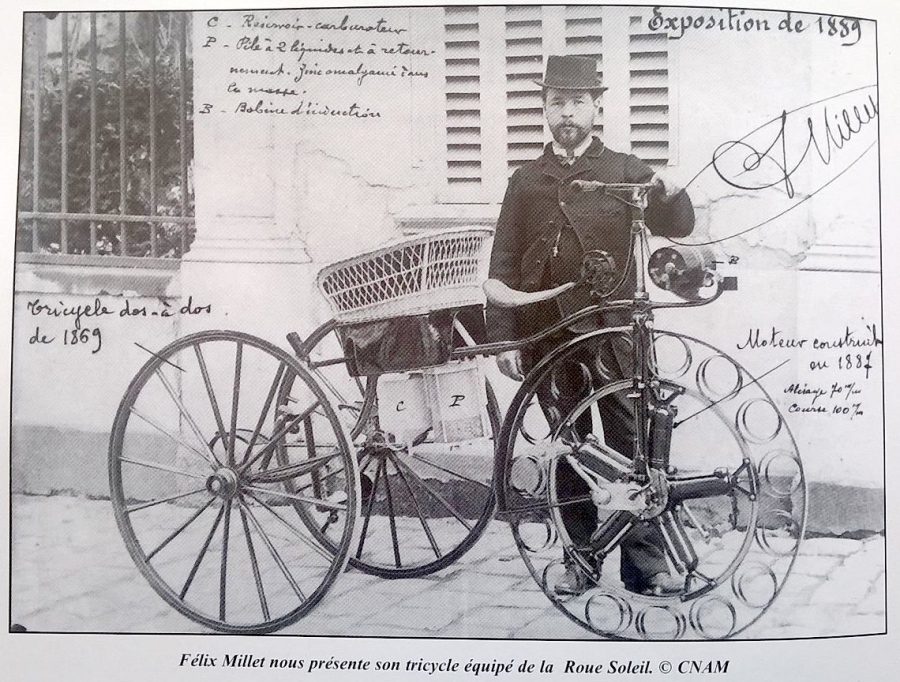 C - Réservoir-carburateur
P - Pile à 2 liquides et à retour-
nement. Zinc amalgamé dans
la masse.
B - Bobine d'induction
Exposition de 1889
F Millet
B
Tricycle dos-à dos
de 1869
Moteur construit
en 1887
Alésage 70 m/m
Course 100 m/m
C
P
Félix Millet nous présente son tricycle équipé de la Roue Soleil. © CNAM